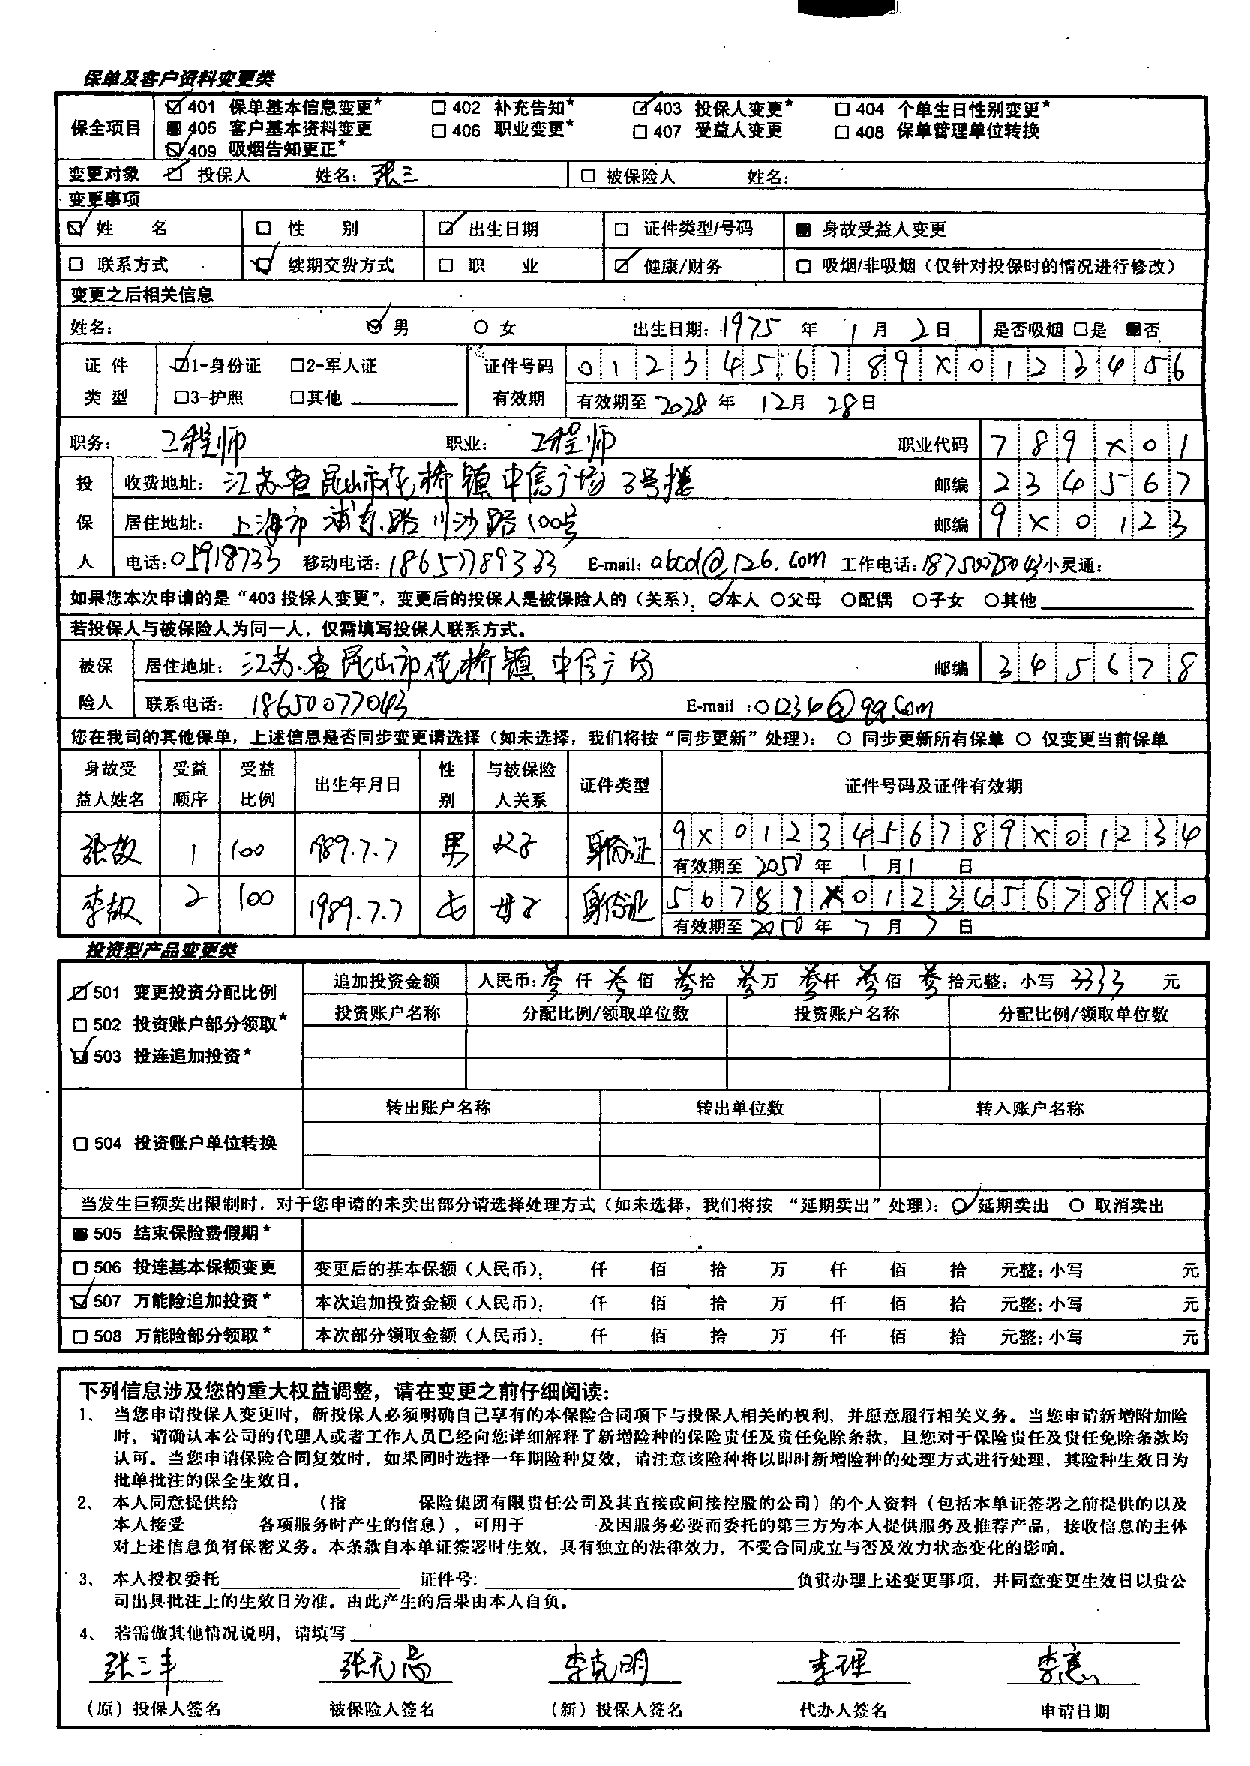 保单及客户资料变更类
保全项目
☑401 保单基本信息变更* □402 补充告知* ☑403 投保人变更* □404 个单生日性别变更*
■405 客户基本资料变更 □406 职业变更* □407 受益人变更 □408 保单管理单位转换
☑409 吸烟告知更正*
变更对象 ☑投保人 姓名: 张三 □被保险人 姓名:
变更事项
☑姓 名 □性 别 ☑出生日期 □证件类型/号码 ■身故受益人变更
□联系方式 ☑续期交费方式 □职 业 ☑健康/财务 □吸烟/非吸烟(仅针对投保时的情况进行修改)
变更之后相关信息
姓名: ☑男 ○女 出生日期: 1975 年 1 月 2 日 是否吸烟 □是 ■否
证件类型 ☑1-身份证 □2-军人证 □3-护照 □其他
证件号码 0123456789X0123456
有效期 有效期至 2028 年 12 月 28 日
职务: 工程师 职业: 工程师 职业代码 789X01
投保人 收费地址: 江苏省昆山市花桥镇中信广场3号楼 邮编 234567
居住地址: 上海市浦东路川沙路100号 邮编 9X0123
电话: 01918733 移动电话: 18657789333 E-mail: abcd@126.com 工作电话: 18750075043 小灵通:
如果您本次申请的是“403投保人变更”,变更后的投保人是被保险人的(关系): ☑本人 ○父母 ○配偶 ○子女 ○其他
若投保人与被保险人为同一人,仅需填写投保人联系方式。
被保险人 居住地址: 江苏省昆山市花桥镇中信广场 邮编 345678
联系电话: 18650077043 E-mail: 01234@qq.com
您在我司的其他保单,上述信息是否同步变更请选择(如未选择,我们将按“同步更新”处理): ○同步更新所有保单 ○仅变更当前保单
身故受益人姓名 受益顺序 受益比例 出生年月日 性别 与被保险人关系 证件类型 证件号码及证件有效期
张敬 1 100 1989.7.7 男 父子 身份证 9X0123456789X01234
有效期至 2050 年 1 月 1 日
李敏 2 100 1989.7.7 女 母子 身份证 56789X0123456789X0
有效期至 2050 年 7 月 7 日
投资型产品变更类
☑501 变更投资分配比例
□502 投资账户部分领取*
☑503 投连追加投资*
追加投资金额 人民币: 叁仟叁佰叁拾叁万叁仟叁佰叁拾元整; 小写 3333 元
投资账户名称 分配比例/领取单位数 投资账户名称 分配比例/领取单位数
□504 投资账户单位转换
转出账户名称 转出单位数 转入账户名称
当发生巨额卖出限制时,对于您申请的未卖出部分请选择处理方式(如未选择,我们将按“延期卖出”处理): ☑延期卖出 ○取消卖出
■505 结束保险费假期*
□506 投连基本保额变更 变更后的基本保额(人民币): 仟 佰 拾 万 仟 佰 拾 元整; 小写 元
☑507 万能险追加投资* 本次追加投资金额(人民币): 仟 佰 拾 万 仟 佰 拾 元整; 小写 元
□508 万能险部分领取* 本次部分领取金额(人民币): 仟 佰 拾 万 仟 佰 拾 元整; 小写 元
下列信息涉及您的重大权益调整,请在变更之前仔细阅读:
1、 当您申请投保人变更时,新投保人必须明确自己享有的本保险合同项下与投保人相关的权利,并愿意履行相关义务。当您申请新增附加险
时,请确认本公司的代理人或者工作人员已经向您详细解释了新增险种的保险责任及责任免除条款,且您对于保险责任及责任免除条款均
认可。当您申请保险合同复效时,如果同时选择一年期险种复效,请注意该险种将以即时新增险种的处理方式进行处理,其险种生效日为
批单批注的保全生效日。
2、 本人同意提供给 (指 保险集团有限责任公司及其直接或间接控股的公司)的个人资料(包括本单证签署之前提供的以及
本人接受 各项服务时产生的信息),可用于 及因服务必要而委托的第三方为本人提供服务及推荐产品,接收信息的主体
对上述信息负有保密义务。本条款自本单证签署时生效,具有独立的法律效力,不受合同成立与否及效力状态变化的影响。
3、 本人授权委托 证件号: 负责办理上述变更事项,并同意变更生效日以贵公
司出具批注上的生效日为准。由此产生的后果由本人自负。
4、 若需做其他情况说明,请填写
张三丰 张无忌 李克明 李理 李惠
(原)投保人签名 被保险人签名 (新)投保人签名 代办人签名 申请日期